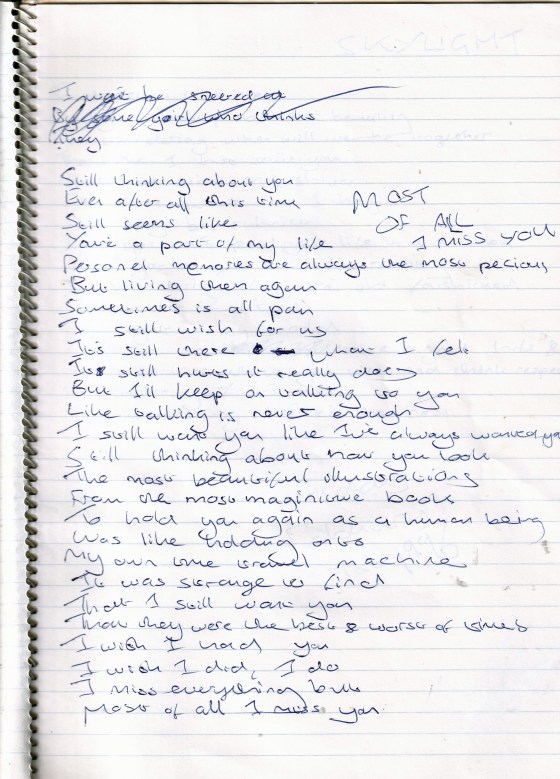 I won't be sneered at
But some you who thinks
They
Still thinking about you
Ever after all this time
Still seems like
You're a part of my life
MOST
OF ALL
I MISS YOU
Personel memories are always the most pecious
But living then again
Sometimes is all pain
I still wish for us
It's still there what I felt
Its still hurts it really does
But I'll keep on talking to you
Like talking is never enough
I still want you like I've always wanted you
Still thinking about how you look
The most beautiful illustrations
From the most maginitive book
To hold you again as a human being
Was like holding onto
My own time travel machine
It was strange to find
That I still want you
That they were the best & worst of times
I wish I had you
I wish I did, I do
I miss everything but
Most of all I miss you